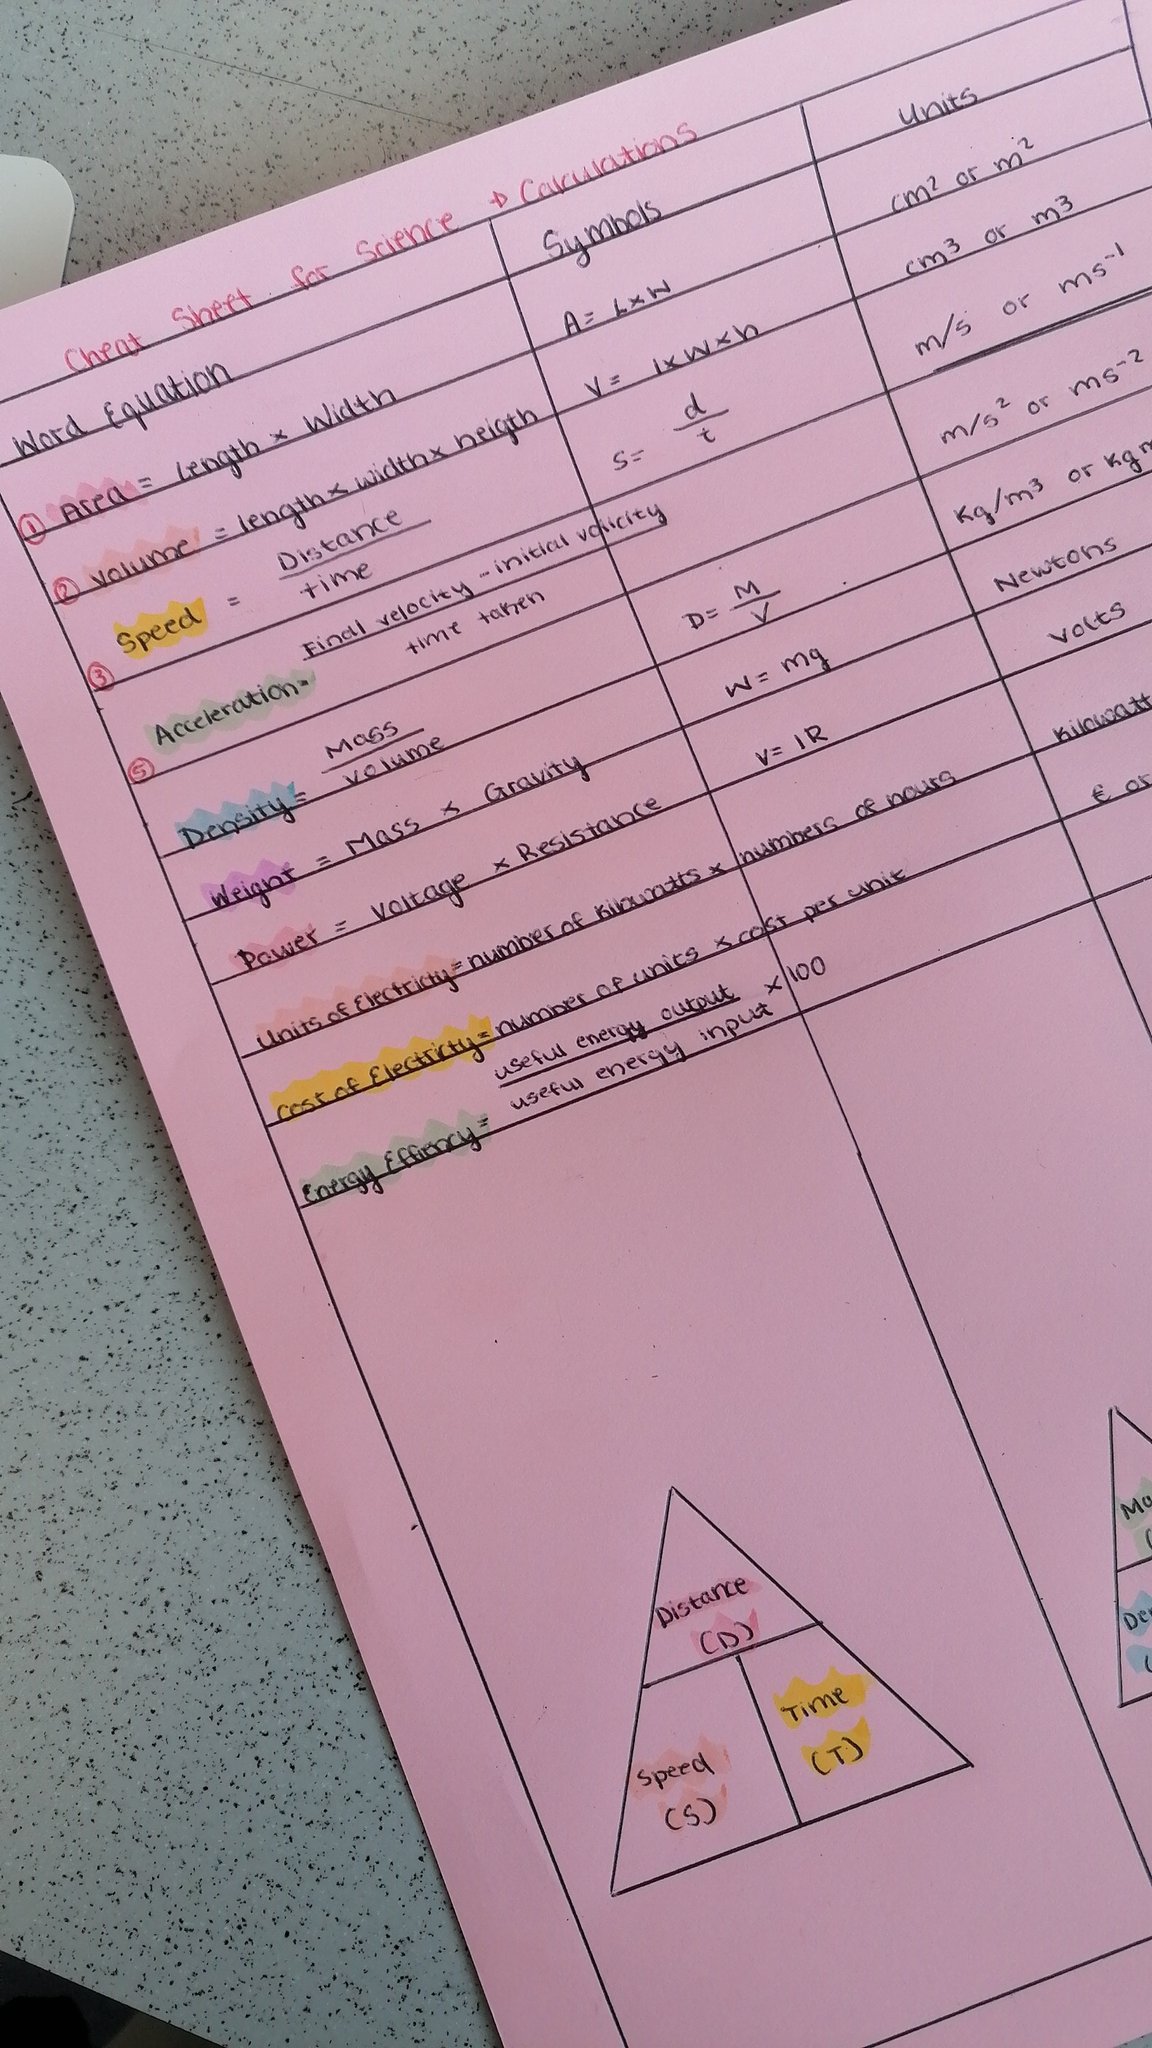 Cheat Sheet for Science → Calculations
Word Equation Symbols Units
① Area = Length × Width A = L×W cm² or m²
② Volume = length × width × heigth V = l×W×h cm³ or m³
③ Speed = Distance / time S = d / t m/s or ms⁻¹
⑤ Acceleration = Final velocity - initial volicity / time taken m/s² or ms⁻²
Density = Mass / volume D = M / V Kg/m³ or
Weight = Mass × Gravity W = mg Newtons
Power = Voltage × Resistance V = IR Volts
Units of Electricity = number of kilowatts × numbers of hours Kilowatt
Cost of Electricty = number of units × cost per unit € or
Energy Efficncy = useful energy output / useful energy input × 100
Distance
(D)
Speed
(S)
Time
(T)